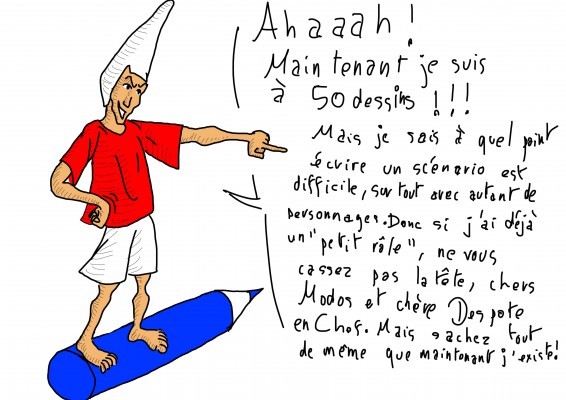 Ahaaah!
Maintenant je suis
à 50 dessins !!!
Mais je sais à quel point
écrire un scénario est
difficile, surtout avec autant de
personnages. Donc si j'ai déjà
un "petit rôle", ne vous
cassez pas la tête, chers
Modos et chère Despote
en Chef. Mais sachez tout
de même que maintenant j'existe!